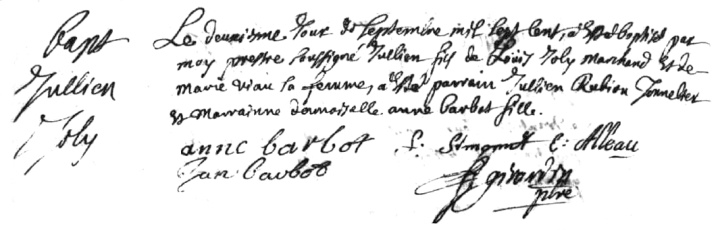 bapt
Jullien
Joly
Le deuxiesme Jour de Septembre mil sept cent, a esté baptisé par
moy prestre soussigné Jullien fils de Louis Joly marchand et de
marie viau sa femme, a esté parrain Jullien Rubion Tonnelier
et marrainne damoiselle anne barbot fille.
anne barbot f. Simonet C: Alleau
Jan barbot girardin
pbre